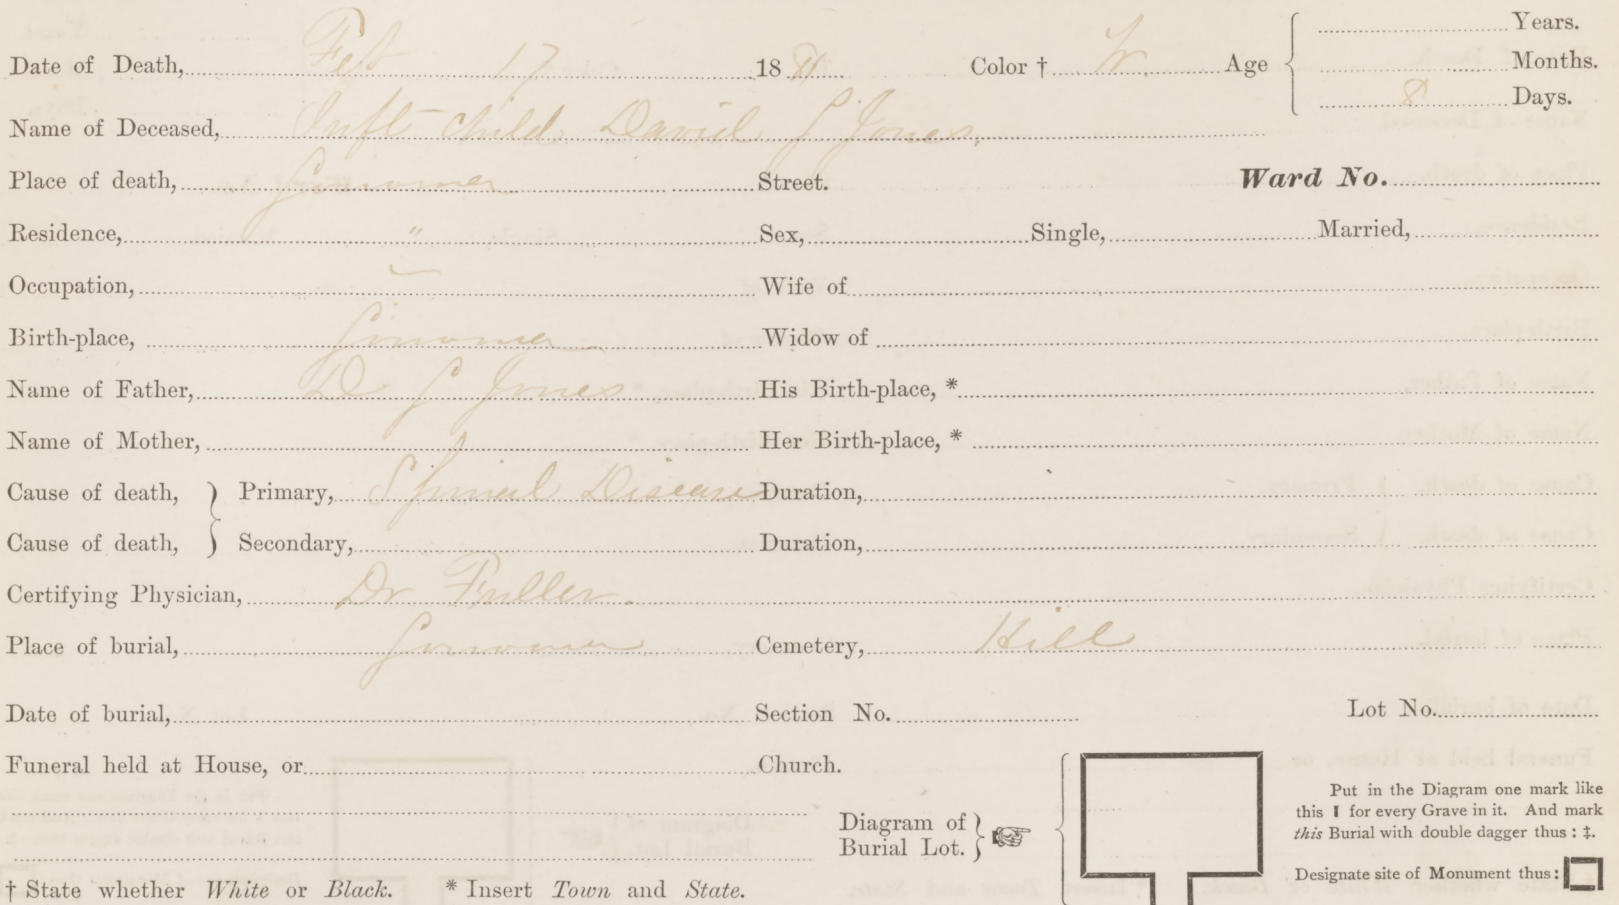 Date of Death, Feb 17 18 Color † W. Age Years.
Months.
8 Days.
Name of Deceased, Inft child David S Jones,
Place of death, Street. Ward No.
Residence, " Sex, Single, Married,
Occupation, Wife of
Birth-place, Widow of
Name of Father, D S Jones His Birth-place, *
Name of Mother, Her Birth-place, *
Cause of death, } Primary, Spinal Disease Duration,
Cause of death, } Secondary, Duration,
Certifying Physician, Dr Fuller.
Place of burial, Cemetery, Hill
Date of burial, Section No. Lot No.
Funeral held at House, or Church.
Diagram of
Burial Lot. }
Put in the Diagram one mark like
this I for every Grave in it. And mark
this Burial with double dagger thus : ‡.
Designate site of Monument thus :
† State whether White or Black. * Insert Town and State.